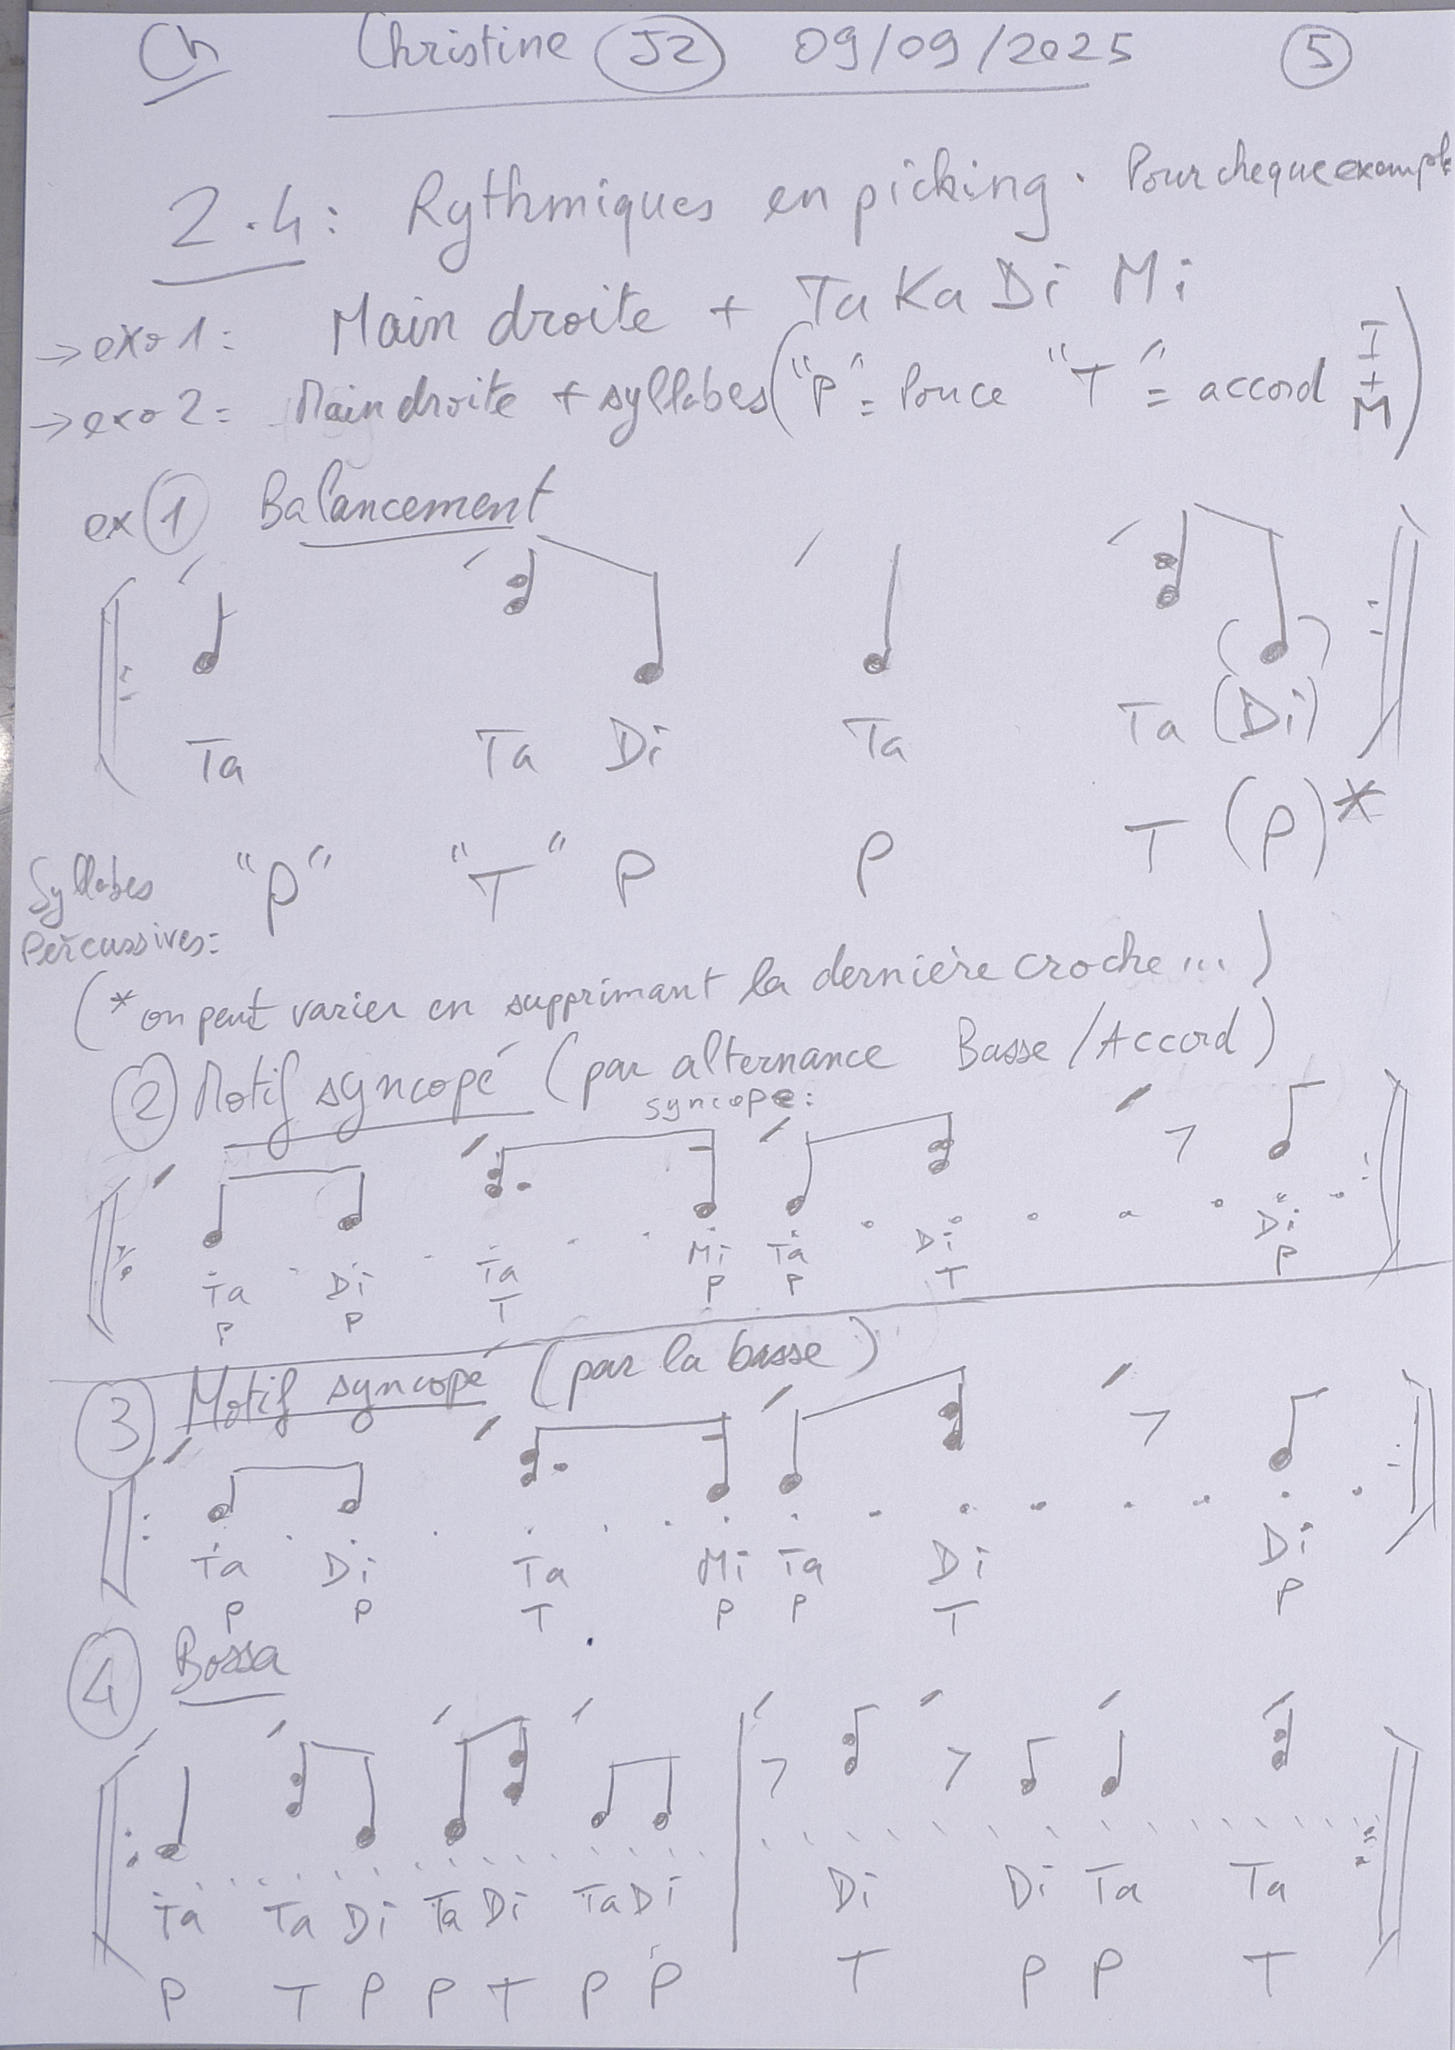 Ch Christine J2 09/09/2025 5
2.4: Rythmiques en picking. Pour chaque exemple
→ exo 1: Main droite + Ta Ka Di Mi
→ exo 2: Main droite + syllabes ("P" = Pouce "T" = accord I + M)
ex 1 Balancement
Ta Ta Di Ta Ta (Di)
Syllabes Percussives: "P" "T" P P T (P)*
(* on peut varier en supprimant la dernière croche...)
2 Motif syncopé (par alternance Basse/Accord)
syncope:
Ta Di Ta Mi Ta Di Di
P P T P P T P
3 Motif syncopé (par la basse)
Ta Di Ta Mi Ta Di Di
P P T P P T P
4 Bossa
Ta Ta Di Ta Di Ta Di Di Di Ta Ta
P T P P T P P T P P T